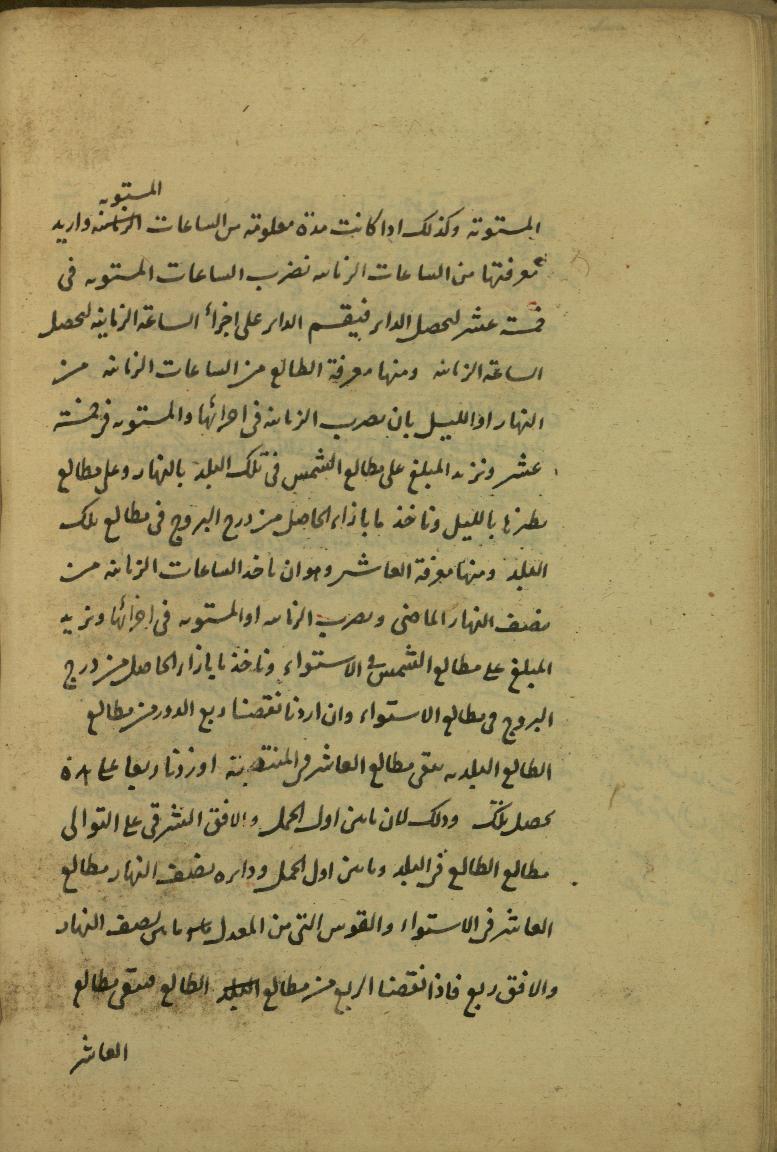 المستوية
المستوية وكذلك اذا كانت مدة معلومة من الساعات الزمانية واريد
معرفتها من الساعات الزمانية نضرب الساعات المستوية فى
خمسة عشر ليحصل الداير فيقسم الداير على اجزاء الساعة الزمانية ليحصل
الساعة الزمانية ومنها معرفة الطالع من الساعات الزمانية من
النهار او الليل بان نضرب الزمانية فى اجزائها والمستوية فى خمسة
عشر ونزيد المبلغ على مطالع الشمس فى تلك البلد بالنهار وعلى مطالع
نظيرها بالليل وناخذ ما بازاء الحاصل من درج البروج فى مطالع تلك
البلد ومنها معرفة العاشر وهو ان ناخذ الساعات الزمانية من
نصف النهار الماضى ونضرب الزمانية او المستوية فى اجزائها ونزيد
المبلغ على مطالع الشمس فى الاستواء وناخذ ما بازاء الحاصل من درج
البروج فى مطالع الاستواء وان اردنا نقصنا ربع الدور من مطالع
الطالع البلدية يبقى مطالع العاشر فى المنتصبة او زدنا ربعا على
يحصل تلك وذلك لان ما بين اول الحمل والافق الشرقى على التوالى
مطالع الطالع فى البلد وما بين اول الحمل ودايرة نصف النهار مطالع
العاشر فى الاستواء والقوس التى من المعدل ما بين نصف النهار
والافق ربع فاذا نقصنا الربع من مطالع البلد الطالع فيبقى مطالع
العاشر